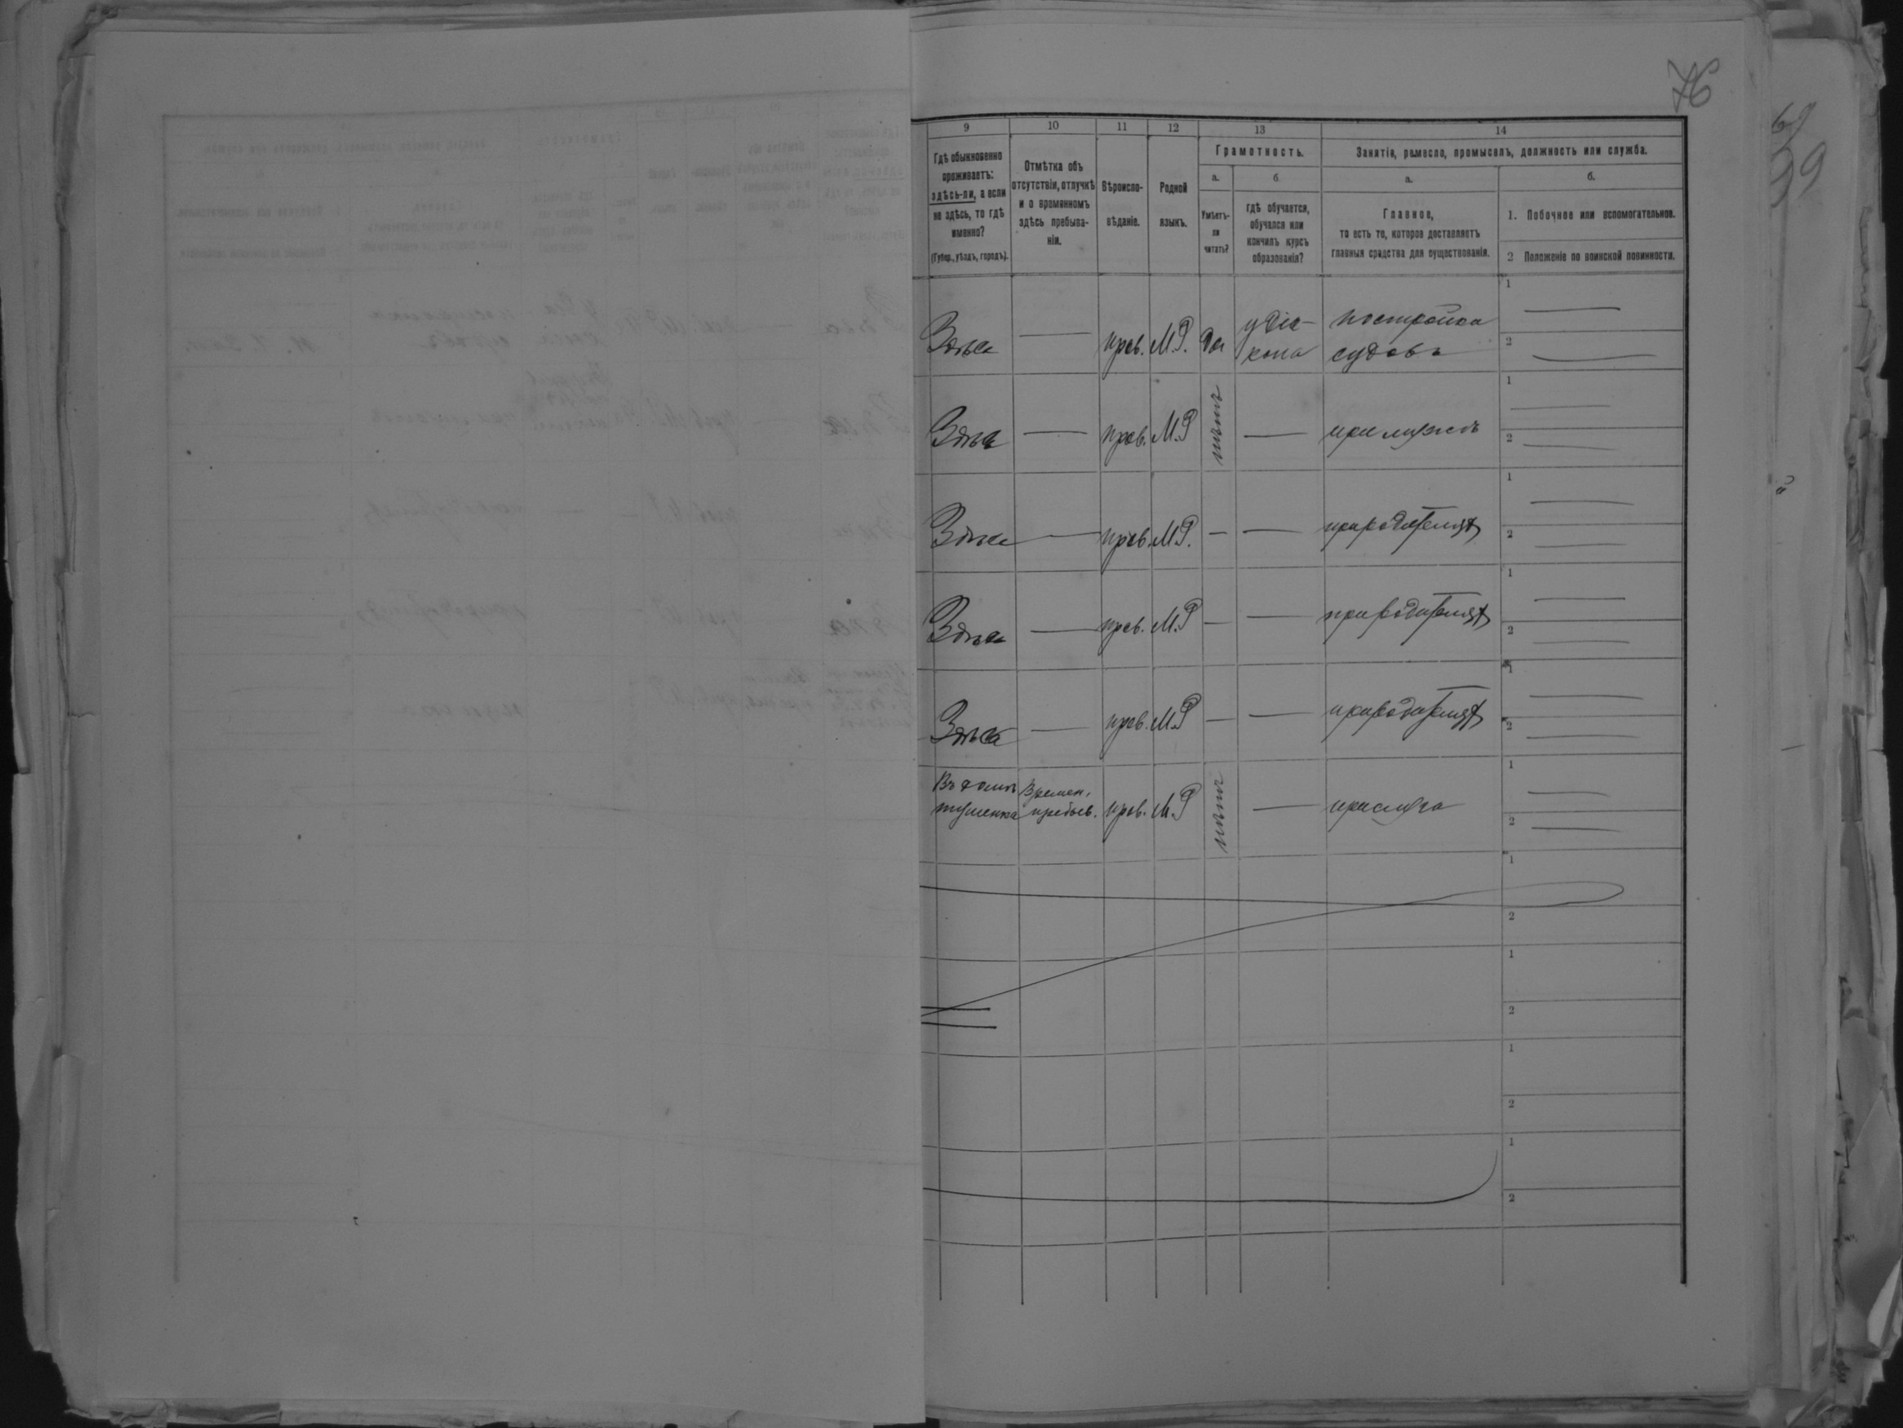 76
9 10 11 12 13 14
Гдѣ обыкновенно
проживаетъ:
здѣсь-ли, а если
не здѣсь, то гдѣ
именно?
(Губер., уѣздъ, городъ).
Отмѣтка объ
отсутствіи, отлучкѣ
и о временномъ
здѣсь пребыва-
ніи.
Вѣроиспо-
вѣданіе.
Родной
языкъ.
Грамотность.
а.
Умѣетъ-
ли
читать?
б.
Гдѣ обучается,
обучался или
кончилъ курсъ
образованія?
Занятіе, ремесло, промыселъ, должность или служба.
а.
Главное,
то есть то, которое доставляетъ
главныя средства для существованія.
б.
1. Побочное или вспомогательное.
2 Положеніе по воинской повинности.
Здѣсь — прав. М.Р. да у діа-
кона постройка
судовъ 1 —
2 —
Здѣсь — прав. М.Р нѣтъ — при мужѣ 1 —
2 —
Здѣсь — прав. М.Р. — — при родителяхъ 1 —
2 —
Здѣсь — прав. М.Р — — при родителяхъ 1 —
2 —
Здѣсь — прав. М.Р — — при родителяхъ 1 —
2 —
Времен.
пребыв. прав. М.Р нѣтъ — прислуга 1 —
2 —
1
2
1
2
1
2
1
2